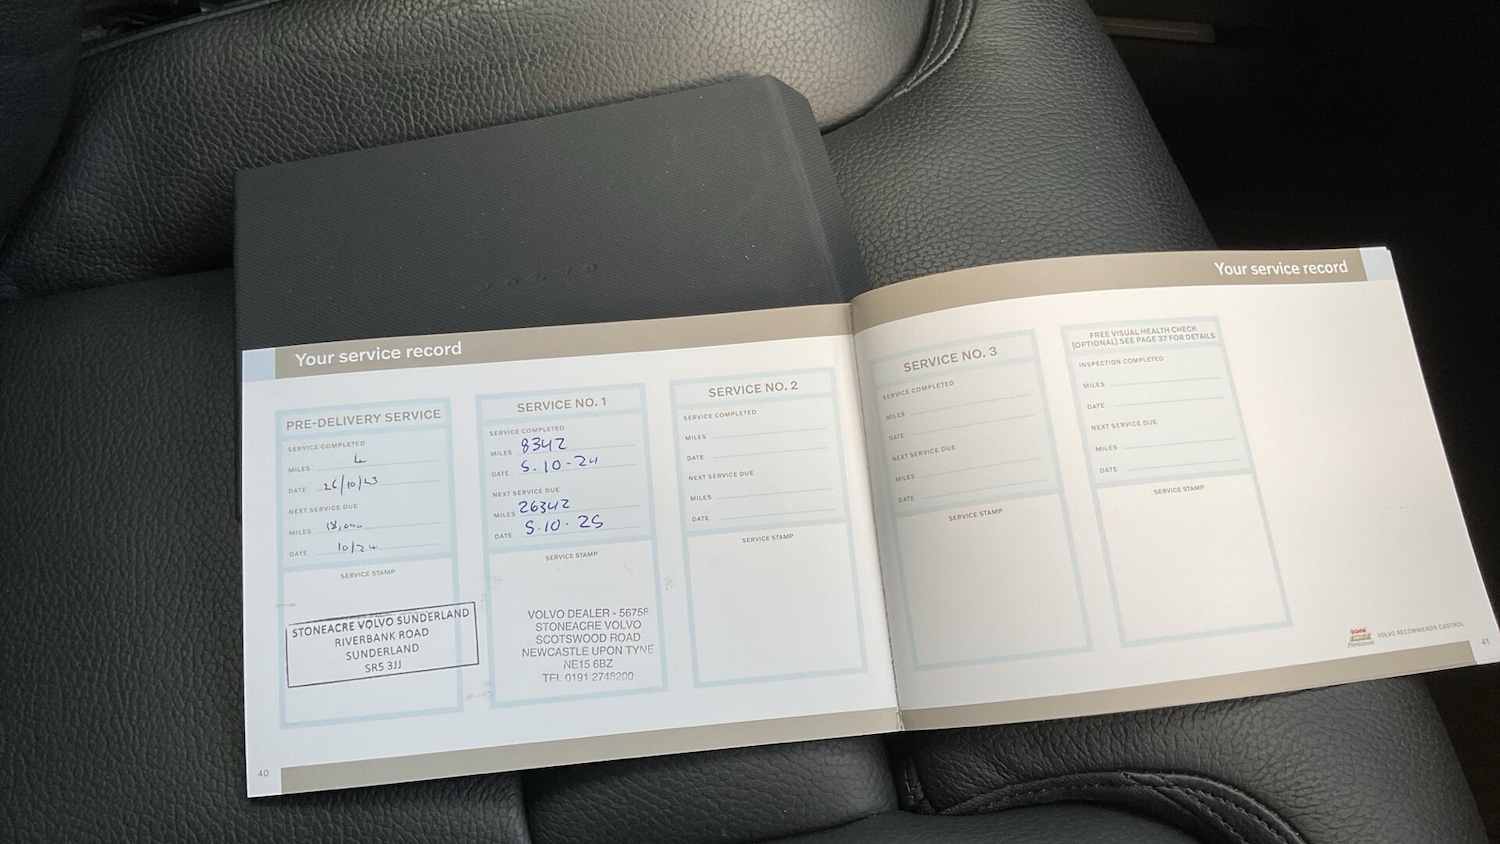 volvo
Your service record
PRE-DELIVERY SERVICE
SERVICE COMPLETED
MILES 4
DATE 26/10/23
NEXT SERVICE DUE
MILES 18,000
DATE 10/24
SERVICE STAMP
STONEACRE VOLVO SUNDERLAND
RIVERBANK ROAD
SUNDERLAND
SR5 3JJ
SERVICE NO. 1
SERVICE COMPLETED
MILES 8342
DATE 5.10-24
NEXT SERVICE DUE
MILES 26342
DATE 5.10.25
SERVICE STAMP
VOLVO DEALER - 56758
STONEACRE VOLVO
SCOTSWOOD ROAD
NEWCASTLE UPON TYNE
NE15 6BZ
TEL 0191 2749200
SERVICE NO. 2
SERVICE COMPLETED
MILES
DATE
NEXT SERVICE DUE
MILES
DATE
SERVICE STAMP
40
Your service record
SERVICE NO. 3
SERVICE COMPLETED
MILES
DATE
NEXT SERVICE DUE
MILES
DATE
SERVICE STAMP
FREE VISUAL HEALTH CHECK
(OPTIONAL) SEE PAGE 37 FOR DETAILS
INSPECTION COMPLETED
MILES
DATE
NEXT SERVICE DUE
MILES
DATE
SERVICE STAMP
Castrol
EDGE
Professional
VOLVO RECOMMENDS CASTROL
41